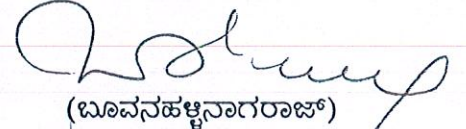 (ಬೂವನಹಳ್ಳಿನಾಗರಾಜ್)